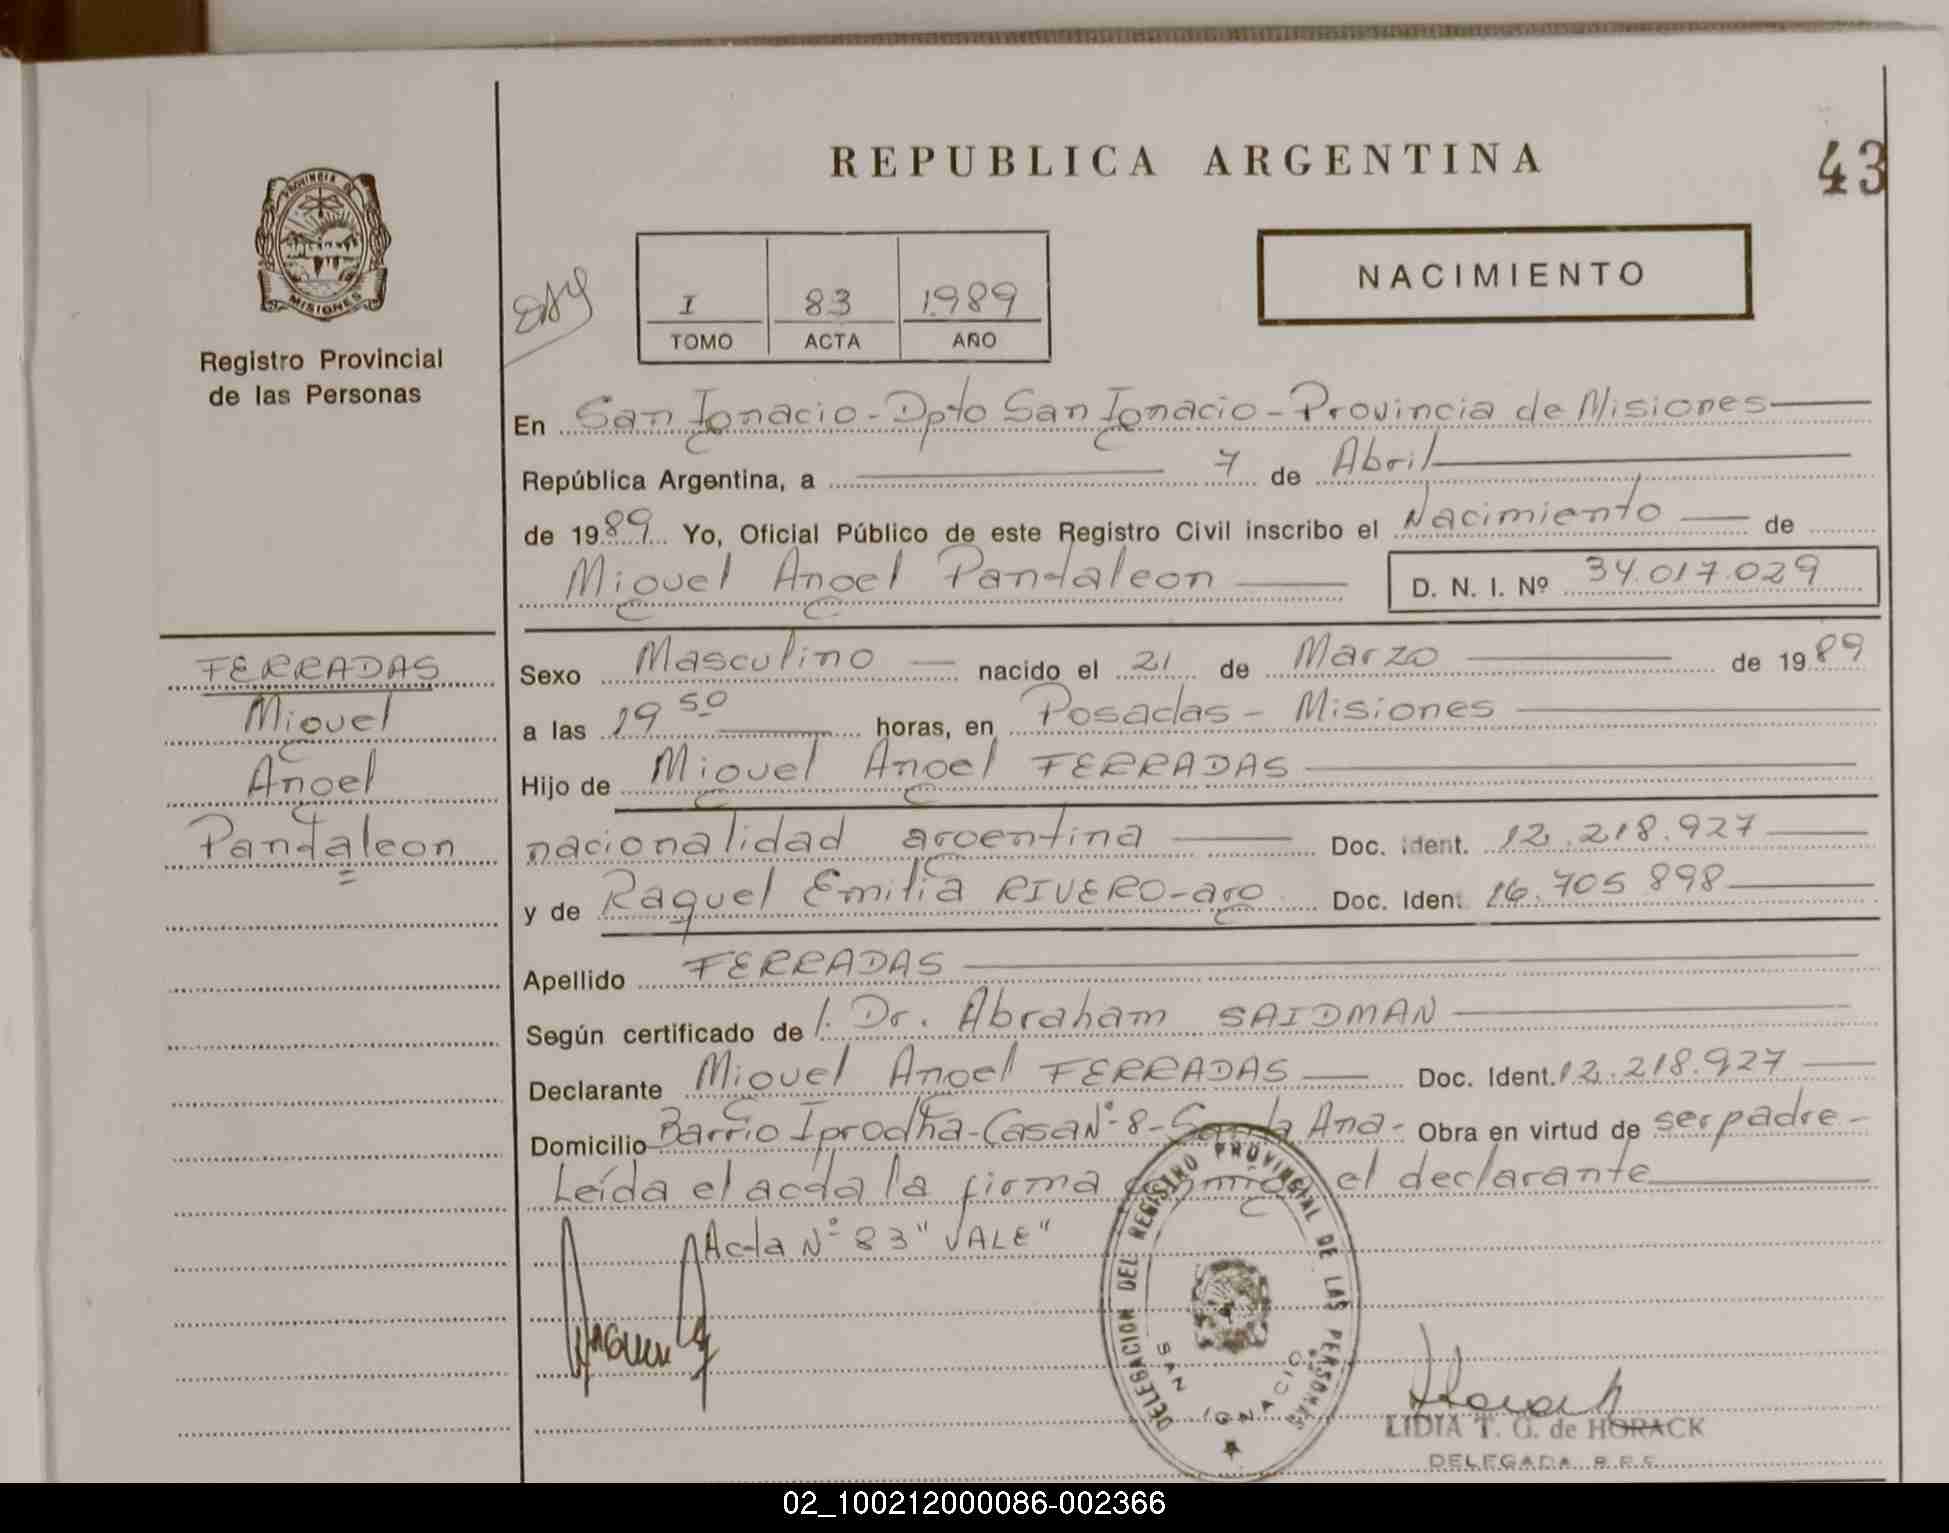 REPUBLICA ARGENTINA
43
PROVINCIA DE
MISIONES
Registro Provincial
de las Personas
I 83 1.989
TOMO ACTA AÑO
NACIMIENTO
En San Ignacio - Dpto San Ignacio - Provincia de Misiones
República Argentina, a 7 de Abril
de 1989 Yo, Oficial Público de este Registro Civil inscribo el Nacimiento de
Miguel Angel Pantaleon D. N. I. Nº 34.017.029
FERRADAS
Miguel
Angel
Pantaleon
Sexo Masculino nacido el 21 de Marzo de 1989
a las 19 50 horas, en Posadas - Misiones
Hijo de Miguel Angel FERRADAS
nacionalidad argentina Doc. ident. 12.218.927
y de Raquel Emilia RIVERO-arg Doc. Ident 16.705 898
Apellido FERRADAS
Según certificado de l. Dr. Abraham SAIDMAN
Declarante Miguel Angel FERRADAS Doc. Ident. 12.218.927
Domicilio Barrio Iprodha-Casa Nº 8-Santa Ana- Obra en virtud de ser padre-
Leída el acta la firma conmigo el declarante
Acta Nº 83 "VALE"
DELEGACION DEL REGISTRO PROVINCIAL DE LAS PERSONAS
SAN IGNACIO
LIDIA T. G. de HORACK
DELEGADA
02_100212000086-002366